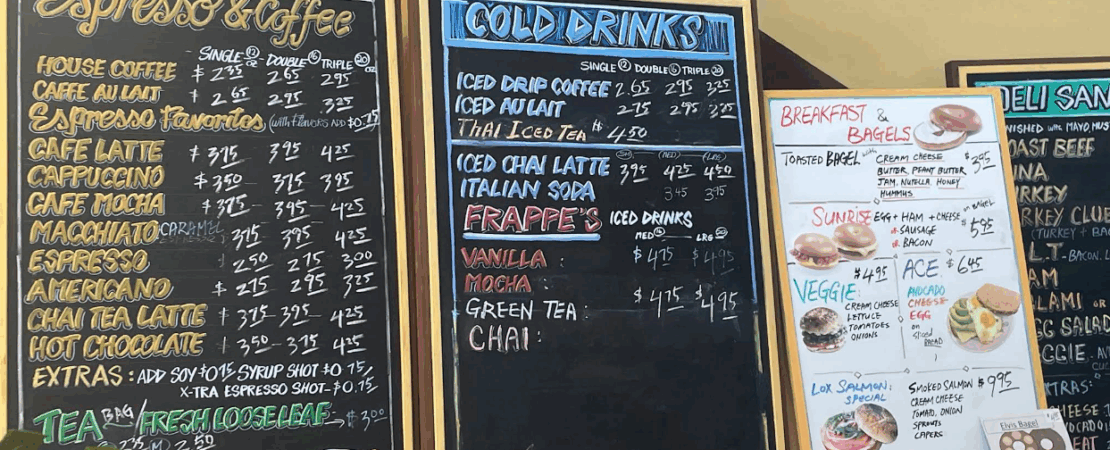 Espresso & Coffee
SINGLE 12 DOUBLE 16 TRIPLE 20 OZ
HOUSE COFFEE $ 2.35 2.65 2.95
CAFFE AU LAIT $ 2.65 2.95 3.25
Espresso Favorites (with Flavors ADD $0.75
CAFE LATTE $ 3.75 3.95 4.25
CAPPUCCINO $ 3.50 3.75 3.95
CAFE MOCHA $ 3.75 3.95 4.25
MACCHIATO CARAMEL ESPRESSO 3.75 3.95 4.25
ESPRESSO 2.50 2.75 3.00
AMERICANO 2.75 2.95 3.25
CHAI TEA LATTE 3.75 3.95 4.25
HOT CHOCOLATE 3.50 3.75 4.25
EXTRAS: ADD SOY $0.75 SYRUP SHOT $0.75,
X-TRA ESPRESSO SHOT $0.75,
TEA BAG / FRESH LOOSE LEAF $3.00
2.50
COLD DRINKS
SINGLE 12 DOUBLE 16 TRIPLE 20
ICED DRIP COFFEE 2.65 2.95 3.25
ICED AU LAIT 2.75 2.95 3.25
THAI ICED TEA $ 4.50
(SM) (MED) (LRG)
ICED CHAI LATTE 3.95 4.25 4.50
ITALIAN SODA 3.45 3.95
FRAPPE'S ICED DRINKS
MED 16 LRG 20
VANILLA : $ 4.75 $ 4.95
MOCHA :
GREEN TEA : $ 4.75 $ 4.95
CHAI :
BREAKFAST &
BAGELS
TOASTED BAGEL with CREAM CHEESE $3.95
BUTTER, PEANT BUTTER
JAM, NUTELLA HONEY
HUMMUS
SUNRISE EGG + HAM + CHEESE on BAGEL $5.95
or SAUSAGE
or BACON
$4.95
VEGGIE:
CREAM CHEESE
LETTUCE
TOMATOES
ONIONS
ACE $6.45
AVOCADO
CHEESE
EGG
on
SLICED
BREAD
LOX SALMON:
SPECIAL
SMOKED SALMON $9.95
CREAM CHEESE
TOMATO, ONION
SPROUTS
CAPERS
Elvis Bagel
DELI SAN
NISHED with MAYO, MUST
OAST BEEF
UNA
URKEY
RKEY CLUB
(TURKEY + BA
L.T. - BACON, L
AM
LAMI OR
GG SALAD
GGIE. AV
CUC
XTRAS:
CHEESE
VOCADO
EAT